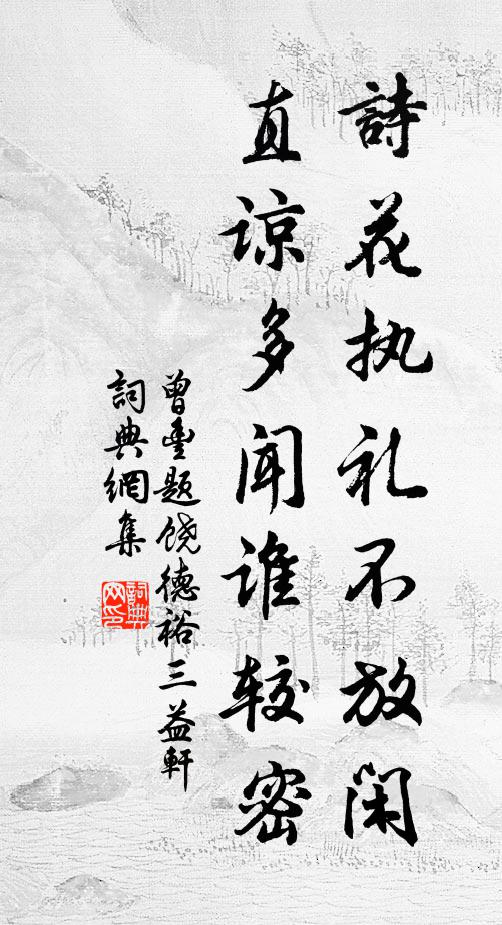 詩花执礼不放闲
直谅多闻谁较密
曾豊题饶德裕三益軒
詞典網集
詞典网印